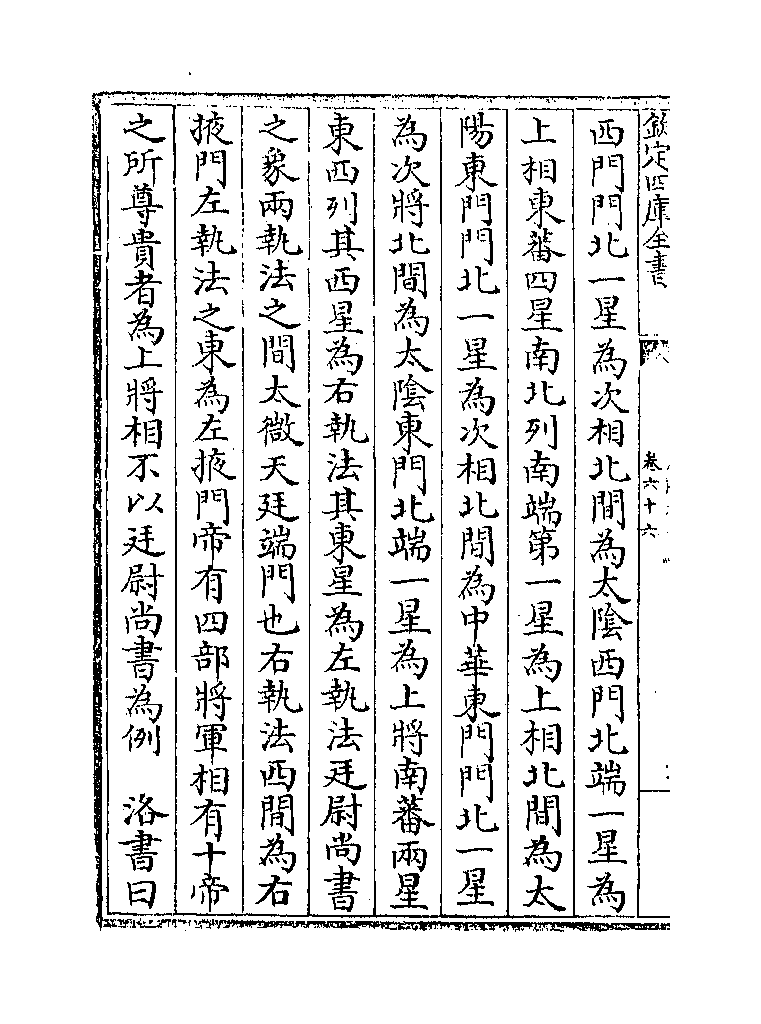 欽定四庫全書
卷六十六
西門門北一星為次相北間為太陰西門北端一星為
上相東蕃四星南北列南端第一星為上相北間為太
陽東門門北一星為次相北間為中華東門門北一星
為次將北間為太陰東門北端一星為上將南蕃兩星
東西列其西星為右執法其東星為左執法廷尉尚書
之象兩執法之間太微天廷端門也右執法西間為右
掖門左執法之東為左掖門帝有四部將軍相有十帝
之所尊貴者為上將相不以廷尉尚書為例　洛書曰